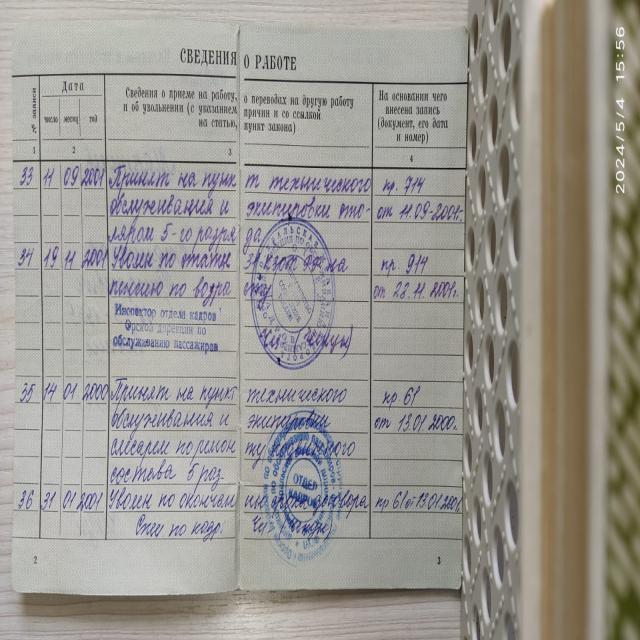 СВЕДЕНИЯ О РАБОТЕ
№ записи
Дата
число месяц год
Сведения о приеме на работу, о переводах на другую работу
и об увольнении (с указанием причин и со ссылкой
на статью, пункт закона)
На основании чего
внесена запись
(документ, его дата
и номер)
1 2 3 4
33 11 09 2001 Принят на пункт технического пр. 914
обслуживания и экипировки сто- от 11.09.2001г.
ляром 5-го разряда
34 19 11 2001 Уволен по статье 31 КЗОТ РФ на пр. 914
пенсию по возра сту от 28.11.2001г.
Инспектор отдела кадров
Орской дирекции по
обслуживанию пассажиров
35 14 01 2000 Принят на пункт технического пр 61
обслуживания и экипировки от 13.01.2000г.
слесарем по ремон ту подвижного
состава 5 раз
36 31 01 2001 Уволен по окончан ию срока договора пр 61 от 13.01.2001
ОТДЕЛ
КАДРОВ
2 3
2024/5/4 15:56